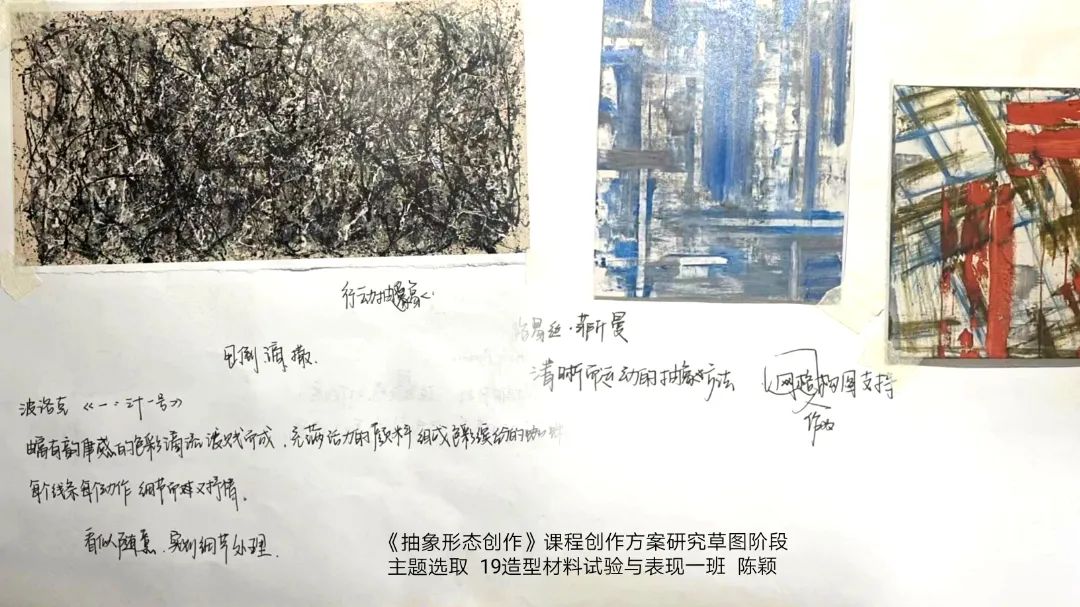 行动抽象
甩倒滴撒.
波洛克《一:三十一号》
幅有韵律感的色彩滴流溅成,充满活力的颜料组成色彩缤纷的
每个线条每个动作细节而又抒情。
看似随意,实则细节处理.
路易丝·菲什曼
清晰而运动的抽象方法
以网格构图支持
作为
《抽象形态创作》课程创作方案研究草图阶段
主题选取 19造型材料试验与表现一班 陈颖